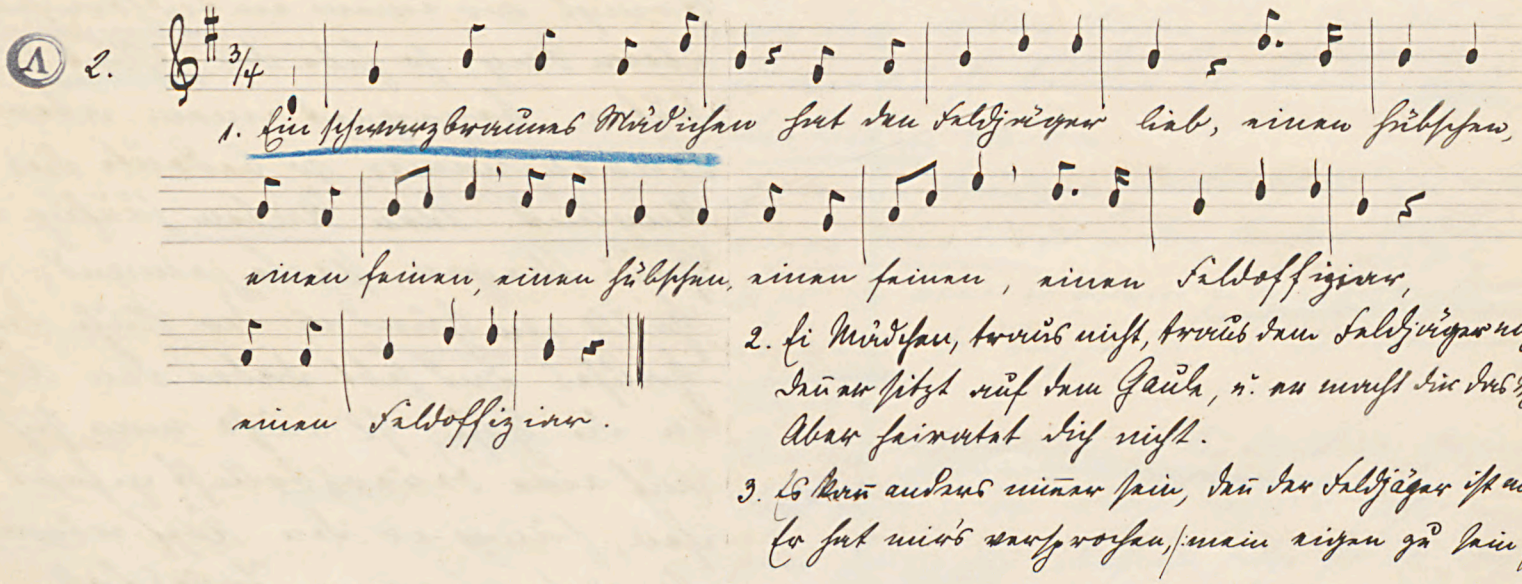 V 2. 3/4
1. Ein schwarzbraunes Mädichen hat den Feldjäger lieb, einen hübschen,
einen feinen, einen hübschen, einen feinen, einen Feldoffizier,
einen Feldoffizier.
2. Ei Mädchen, traus nicht, traus dem Feldjäger
den̄ er sitzt auf dem Gaule, u. er macht dir das
Aber heiratet dich nicht.
3. Es kan̄ anders nim̄er sein, den̄ der Feldjäger ist
Er hat mir's versprochen, |: mein eigen zu sein